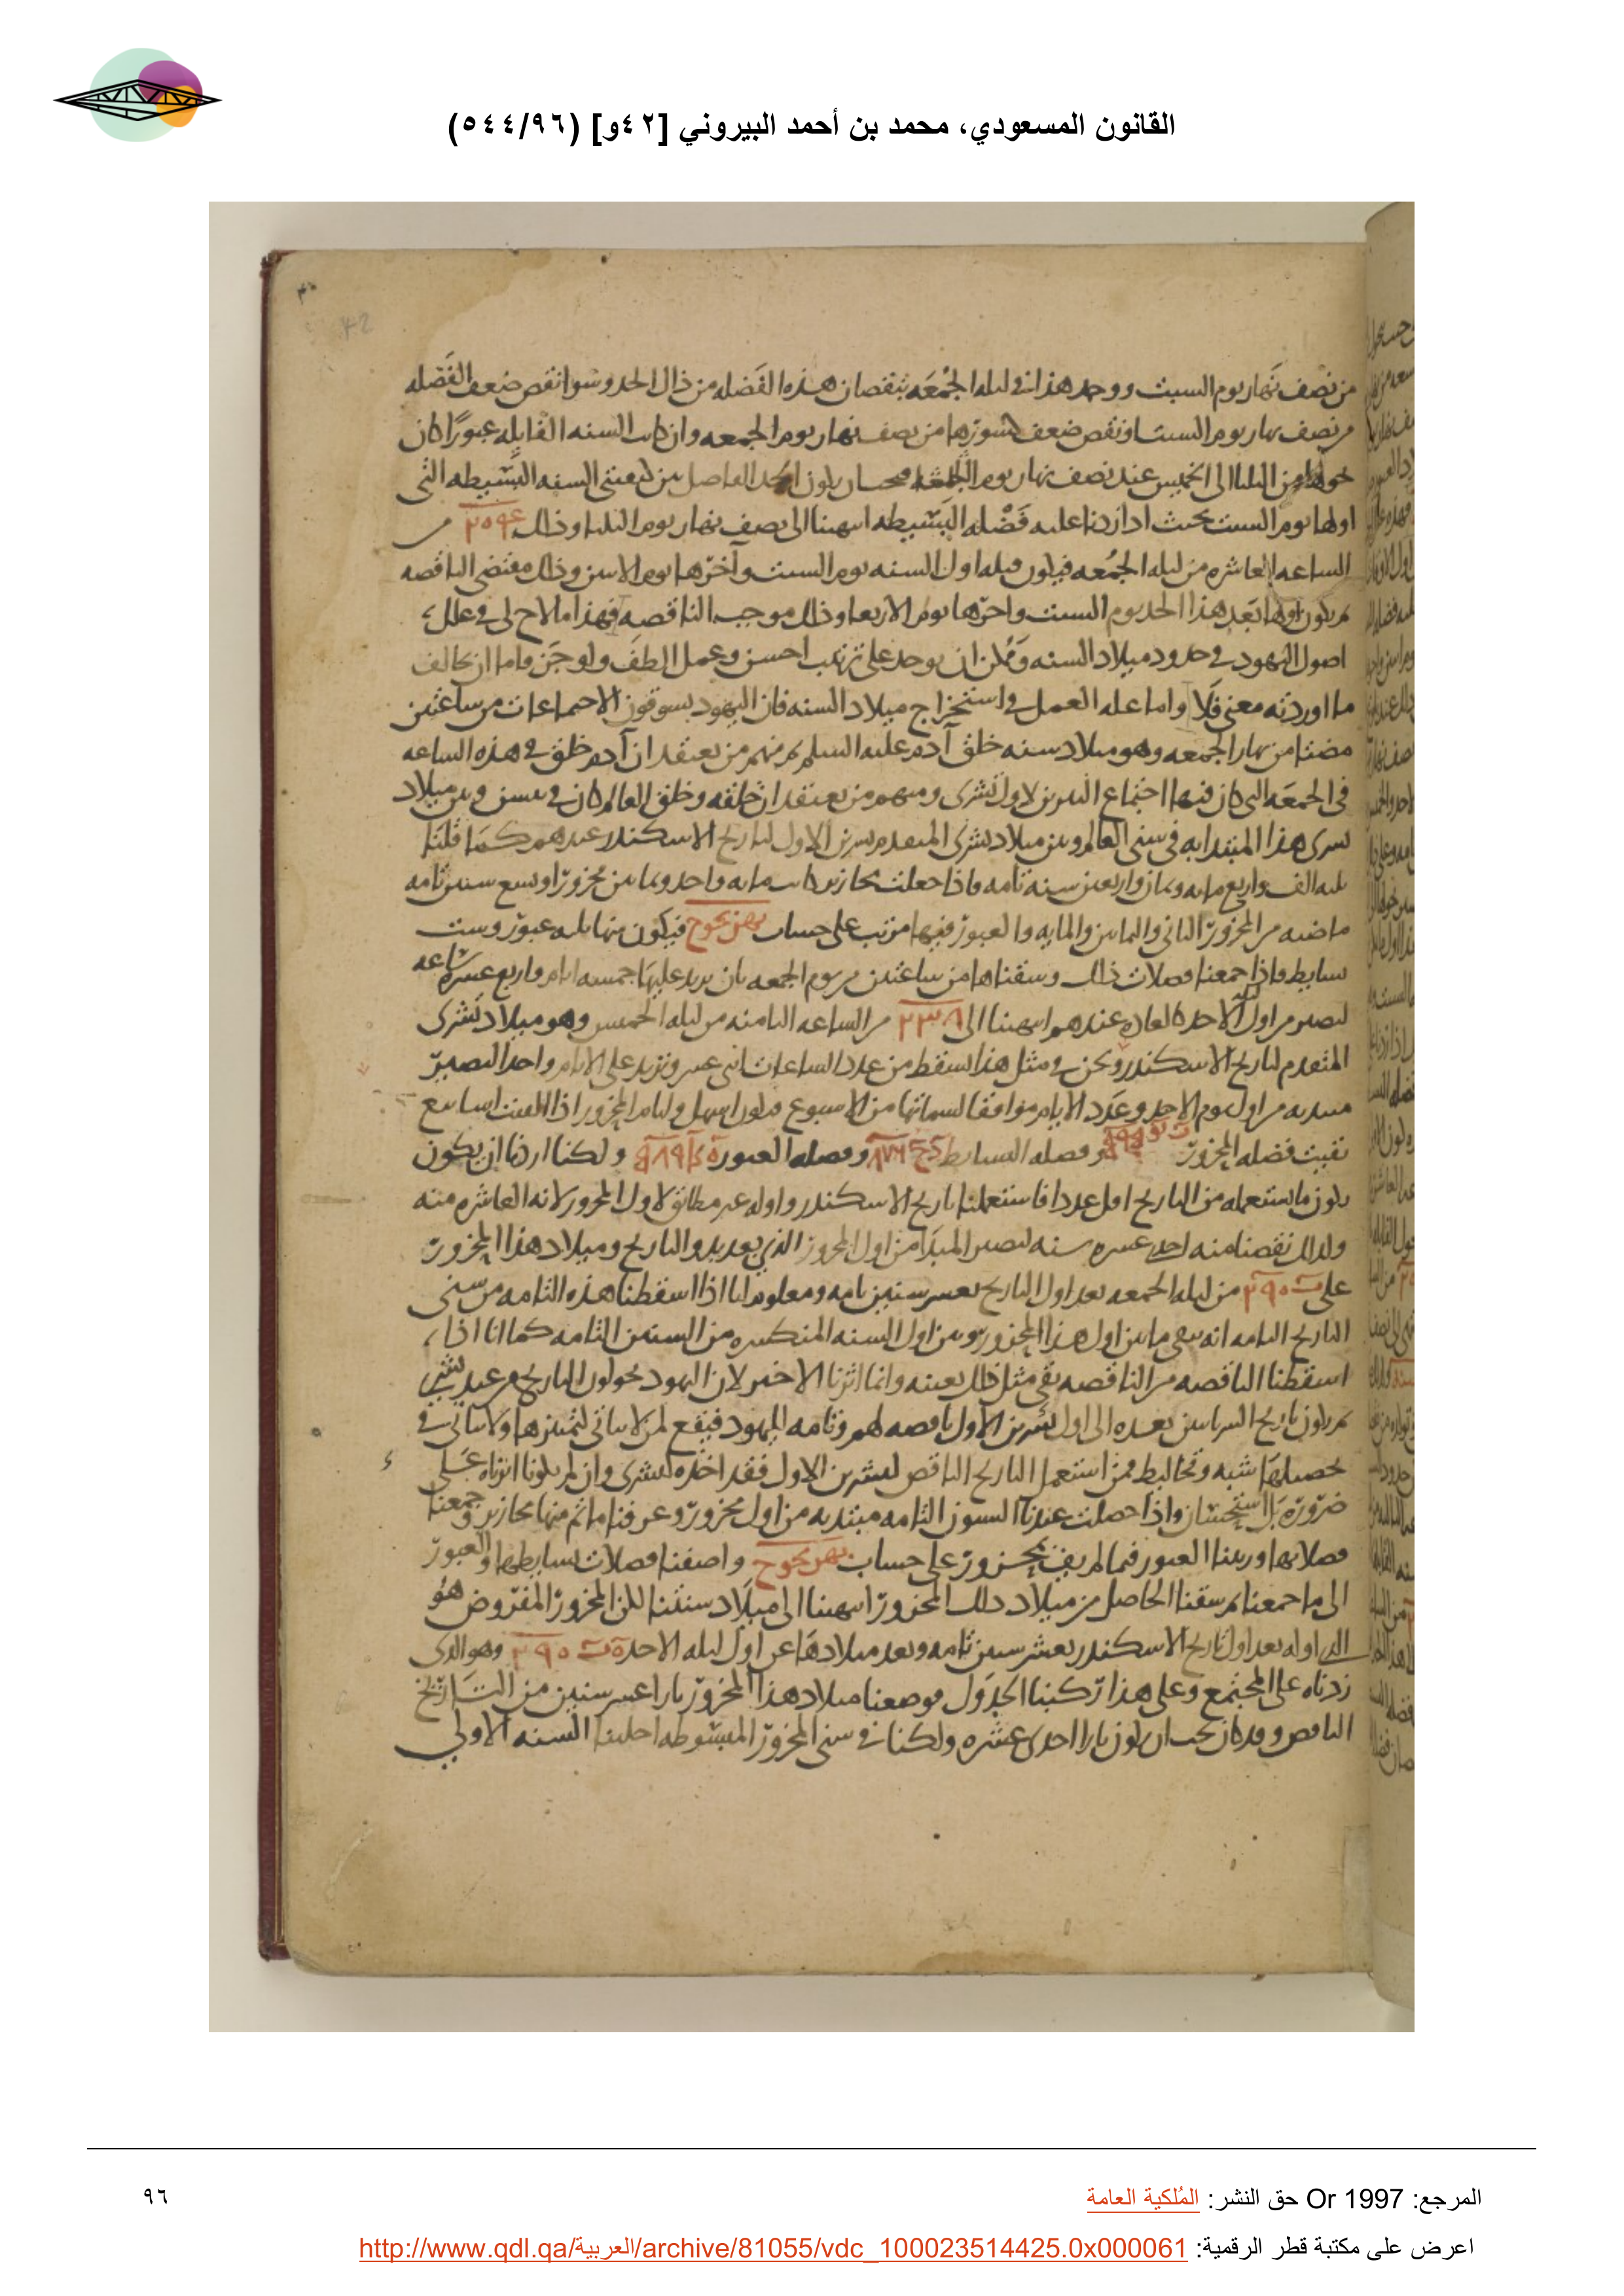 القانون المسعودي، محمد بن أحمد البيروني [٤٢و] (٥٤٤/٩٦)
42
من نصف نهار يوم السبت ووجد هذا في ليله الجمعه بنقصان هذه الفضله من ذلك الحد وسوا نقص ضعف الفضله
من نصف نهار يوم السبت او نقص ضعف من نصف نهار يوم الجمعه وان كانت السنه القابله عبورا كان
من الثلثا الى الخميس عند نصف نهار يوم الحد الفاصل بين كيفيتى السنه البسيطه التى
اولها يوم السبت بحيث اذا زدنا عليه فضله البسيطه انتهينا الى نصف نهار يوم الثلثا وذلك من
الساعه العاشره من ليله الجمعه فيكون قبله اول السنه يوم السبت وآخرها يوم الاثنين وذلك مقتضى الناقصه
ثم يكون اولها بعد هذا الحد يوم السبت واخرها يوم الاربعا وذلك موجب الناقصه فهذا ما لاح لى فى علل
اصول اليهود فى حدود ميلاد السنه وممكن ان يوجد على ترتيب احسن وعمل الطف ولوجز فاما ان يخالف
ما اوردته معنى فلا واما عله العمل فى استخراج ميلاد السنه فان اليهود يسوقون الاجتماعات من ساعتين
مضتا من نهار الجمعه وهو ميلاد سنه خلق آدم عليه السلم ثم منهم من يعتقد ان آدم خلق فى هذه الساعه
فى الجمعه التى كان فيها اجتماع النيرين لاول تشرى ومنهم من يعتقد ان خلقه وخلق العالم كان فى وبين ميلاد
تشرى هذا المبتدا به فى سنى العالم وبين ميلاد تشرى المتقدم تشرين الاول لتاريخ الاسكندر عندهم كما قلنا
ثلثه الف واربع مايه وثمان واربعين سنه تامه فاذا جعلت محازير كانت مايه واحد وثمانين محزورا وتسع سنين تامه
ماضيه من المحزور الثانى والثمانين والمايه والعبور فيها مرتب على حساب بهزيجوح فيكون منها ثلثه عبور وست
بسايط فاذا جمعنا فضلات ذلك وسقناها من ساعتين من يوم الجمعه بان يزيد عليها خمسه ايام واربع عشره ساعه
لتصير من اول ليله الاحد كالعاده عندهم انتهينا الى من الساعه الثامنه من ليله الخميس وهو ميلاد تشرى
المتقدم لتاريخ الاسكندر ونحن فى مثل هذا نسقط من عدد الساعات اثنى عشر ونزيد على الايام واحدا لتصير
مبتديه من اول يوم الاحد وعدد الايام موافقا لسماتها من الاسبوع فيكون اسهل وايام المحزور اذا القيت اسابيع
بقيت فضله المحزور وفضله البسايط وفضله العبور ولكنا اردنا ان يكون
يكون ما نستعمله من التاريخ اقل عددا فاستعملنا تاريخ الاسكندر واوله غير مطابق لاول المحزور لانه العاشره منه
ولذلك نقصنا منه احدى عشره سنه لتصير المبدا من اول المحزور الذى بعد بدو التاريخ وميلاد هذا المحزور
على من ليله الجمعه بعد اول التاريخ بعشر سنين تامه ومعلوم انا اذا اسقطنا هذه التامه من سنى
التاريخ التامه انه يبقى ما بين اول هذا المحزور وبين اول السنه المنكسره من السنين التامه كما انا اذا
اسقطنا الناقصه من الناقصه بقى مثل ذلك بعينه وانما اثرنا الاخير لان اليهود يحولون التاريخ من عند تشرى
ثم يكون تاريخ السريانيين بعده الى اول تشرين الاول ناقصه لهم وتامه لليهود فيقع لمن لا يتاتى لتميزها ولا يتانى فى
تحصيلها شبه وتخاليط فمن استعمل التاريخ الناقص لتشرين الاول فقد اخذه لتشرى وان لم يكونا اثرناه على
ضروره بل استحسان واذا حصلت عندنا السنون التامه مبتديه من اول محزور وعرفنا ما تم منها محازير وجمعنا
فضلاتها ورتبنا العبور فيما لم يف بمحزور على حساب بهزيجوح واضفنا فضلات بسايطها والعبور
الى ما جمعنا ثم سقنا الحاصل من ميلاد ذلك المحزور انتهينا الى ميلاد سنتنا لكن المحزور المفروض هو
الذى اوله بعد اول تاريخ الاسكندر بعشر سنين تامه وبعد ميلادها عن اول ليله الاحد وهو الذى
زدناه على المجتمع وعلى هذا ركبنا الجدول فوضعنا ميلاد هذا المحزور بازا عشر سنين من التاريخ
الناقص وقد كان يجب ان يكون بازا احدى عشره ولكنا فى سنى المحزور المبسوطه اخلينا السنه الاولى
المرجع: Or 1997 حق النشر: المُلكية العامة
٩٦
اعرض على مكتبة قطر الرقمية: http://www.qdl.qa/العربية/archive/81055/vdc_100023514425.0x000061